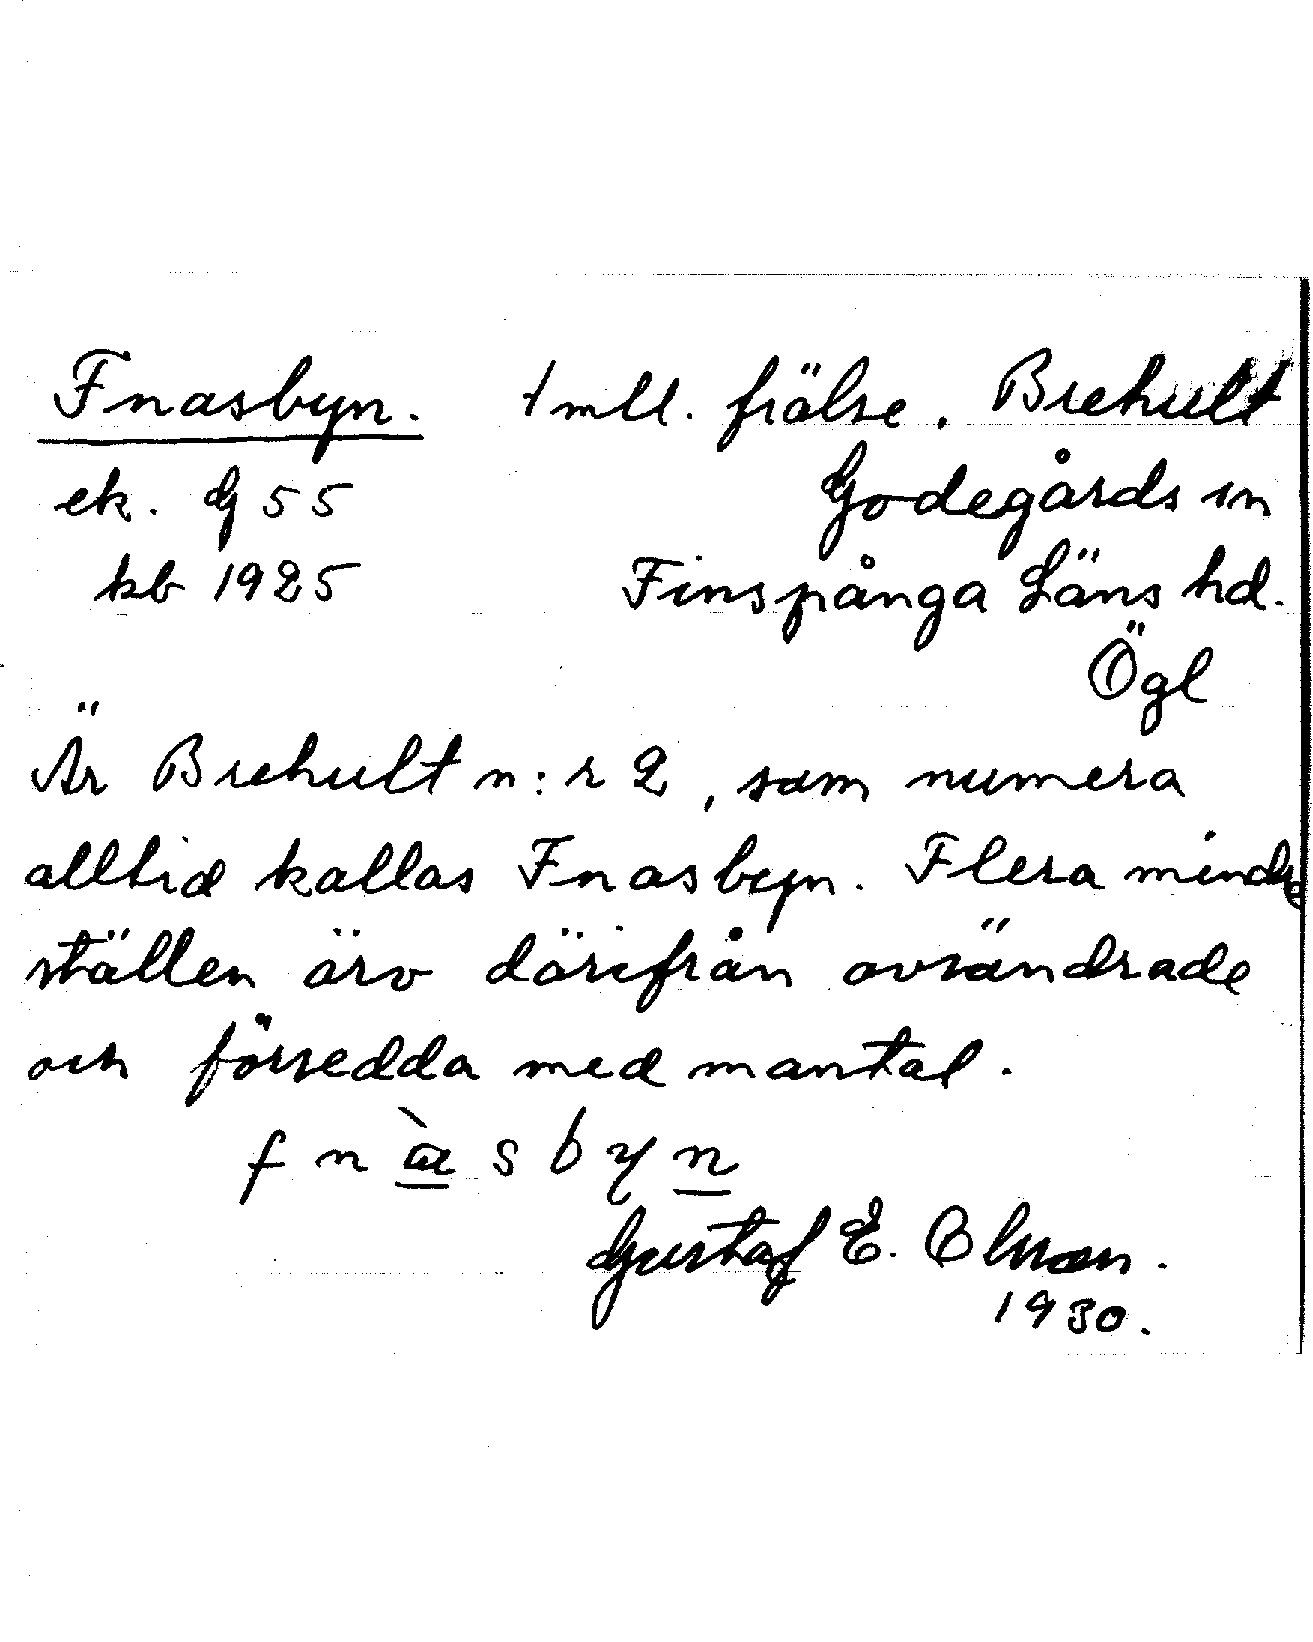 Fnasbyn. 1 mtl. frälse. Brehult
ek. G 55 Godegårds sn
kb 1925 Finspånga Läns hd.
Ögl
Är Brehult n:r 2, som numera
alltid kallas Fnasbyn. Flera mindre
ställen äro därifrån avsöndrade
och försedda med mantal.
f n à s b y n
Gustaf E. Olsson.
1930.